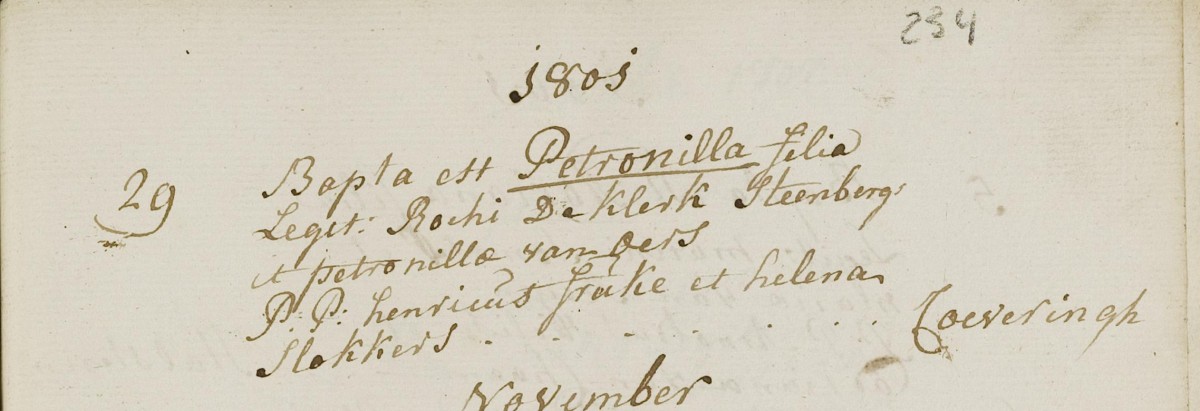 234
1801
29 Bapta est Petronilla filia
Legit: Rochi De Klerk Steenberg:
et petronillæ van Oers
P: P: henricus frake et helena
Slokkers . . . . . . Coeveringh
November